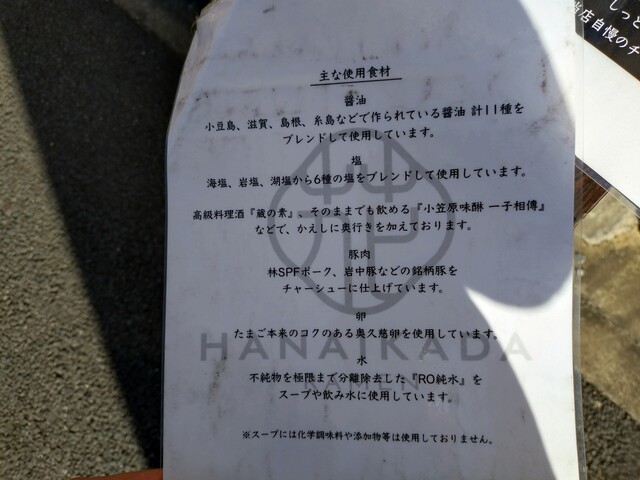 主な使用食材
醤油
小豆島、滋賀、島根、糸島などで作られている醤油 計11種を
ブレンドして使用しています。
塩
海塩、岩塩、湖塩から6種の塩をブレンドして使用しています。
高級料理酒『蔵の素』、そのままでも飲める『小笠原味醂 一子相傳』
などで、かえしに奥行きを加えております。
豚肉
林SPFポーク、岩中豚などの銘柄豚を
チャーシューに仕上げています。
卵
たまご本来のコクのある奥久慈卵を使用しています。
HANAIKADA
水
不純物を極限まで分離除去した『RO純水』を
RAMEN
スープや飲み水に使用しています。
※スープには化学調味料や添加物等は使用しておりません。
しっと
当店自慢のチ